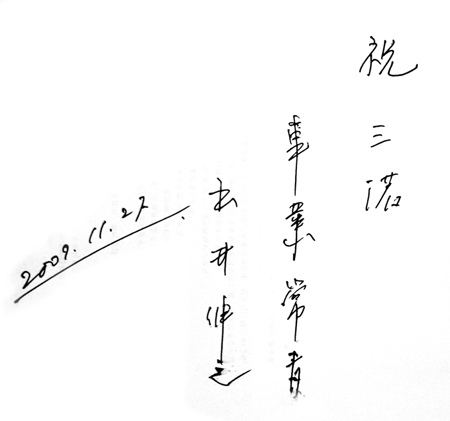 祝三诺
事業常青
玉井伸之
2009.11.27